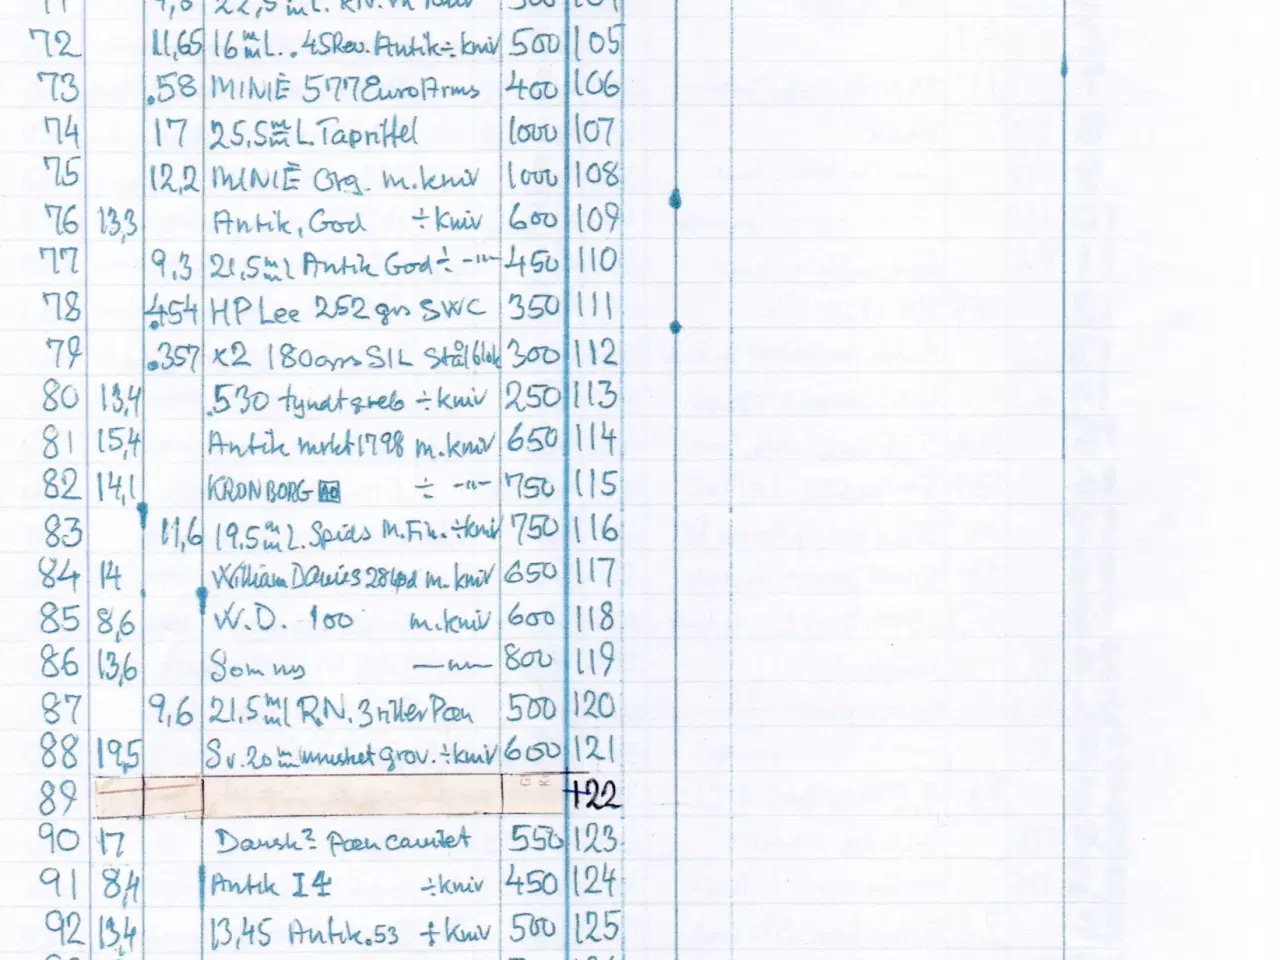 72 11,65 16 m/m L. .45Rev. Antik ÷ kniv 500 105
73 .58 MINIÈ 577 EuroArms 400 106
74 17 25,5 m/m L. Tapriffel 1000 107
75 12,2 MINIÈ Org. m. kniv 1000 108
76 13,3 Antik, God ÷ Kniv 600 109
77 9,3 21,5 m/m l Antik God ÷ -"- 450 110
78 .454 HP Lee 252 grs SWC 350 111
79 .357 x2 180 grs SIL Stålblok 300 112
80 13,4 .530 tyndt greb ÷ kniv 250 113
81 15,4 Antik mrkt 1798 m. kniv 650 114
82 14,1 KRONBORG ÷ -"- 750 115
83 11,6 19,5 m/m L. Spids m. Fin. ÷ kniv 750 116
84 14 William Davies 28 m. kniv 650 117
85 8,6 W.D. 100 m. kniv 600 118
86 13,6 Som ny —"— 800 119
87 9,6 21,5 m/m l R.N. 3 riller Pæn 500 120
88 19,5 Sv. 20 m/m mushet grov. ÷ kniv 600 121
89 122
90 17 Dansk? Pæn 550 123
91 8,4 Antik I4 ÷ kniv 450 124
92 13,4 13,45 Antik .53 ÷ Kniv 500 125